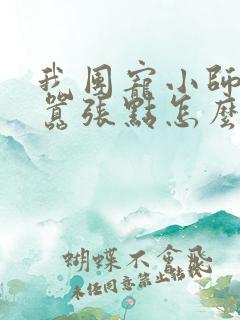 我团寵小師
囂張點怎麼
蝴蝶不會飛
未经同意禁止转载